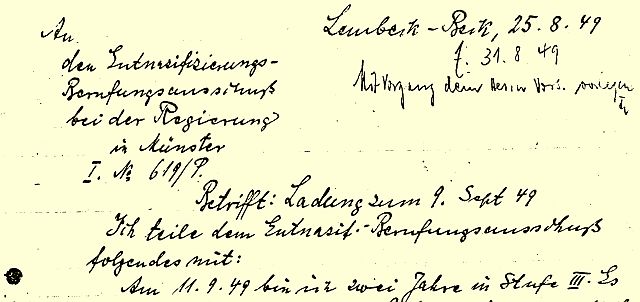 Lembeck-Beck, 25.8.49
An
den Entnazifizierungs-
Berufungsausschuß
bei der Regierung
in Münster
I. № 619/P.
f. 31.8.49
Mit Vorgang dem Herrn Vors. vorlegen
Betrifft: Ladung zum 9. Sept 49
Ich teile dem Entnazif.-Berufungsausschuß
folgendes mit:
Am 11.9.49 bin ich zwei Jahre in Stufe III. Es